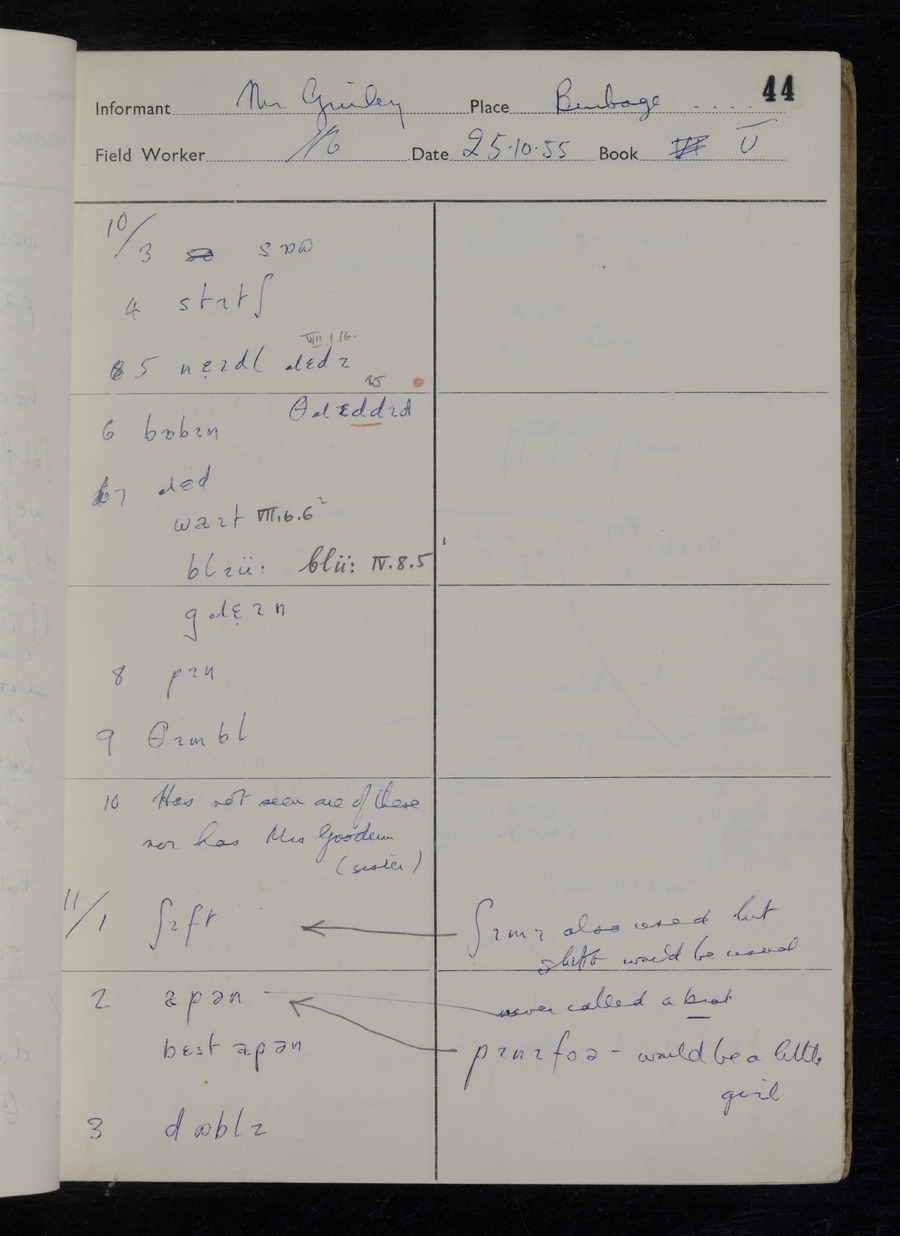 44
Informant Mr Gurley Place Burbage
Field Worker Date 25.10.55 Book V
10/3 sɒɷ
4 stɪtʃ
5 nɛ̣ɪdl ɹɛdɪ VIII.1.16.
6 bɒbɪn θɹɛddɪd
7 ɹɛd
waɪt VII.6.6
blɪü: blü: IV.8.5
gɹɛ̣ɪn
8 pɪn
9 θɪmbl
10 Has not seen one of these
nor has Mrs Gooden
(sister)
11/1 ʃɪft ʃɪmɪ also used but
shift would be usual
2 apən never called a brat
bɛst apən pɪnɪfoə - would be a little
girl
3 dɒblɪ